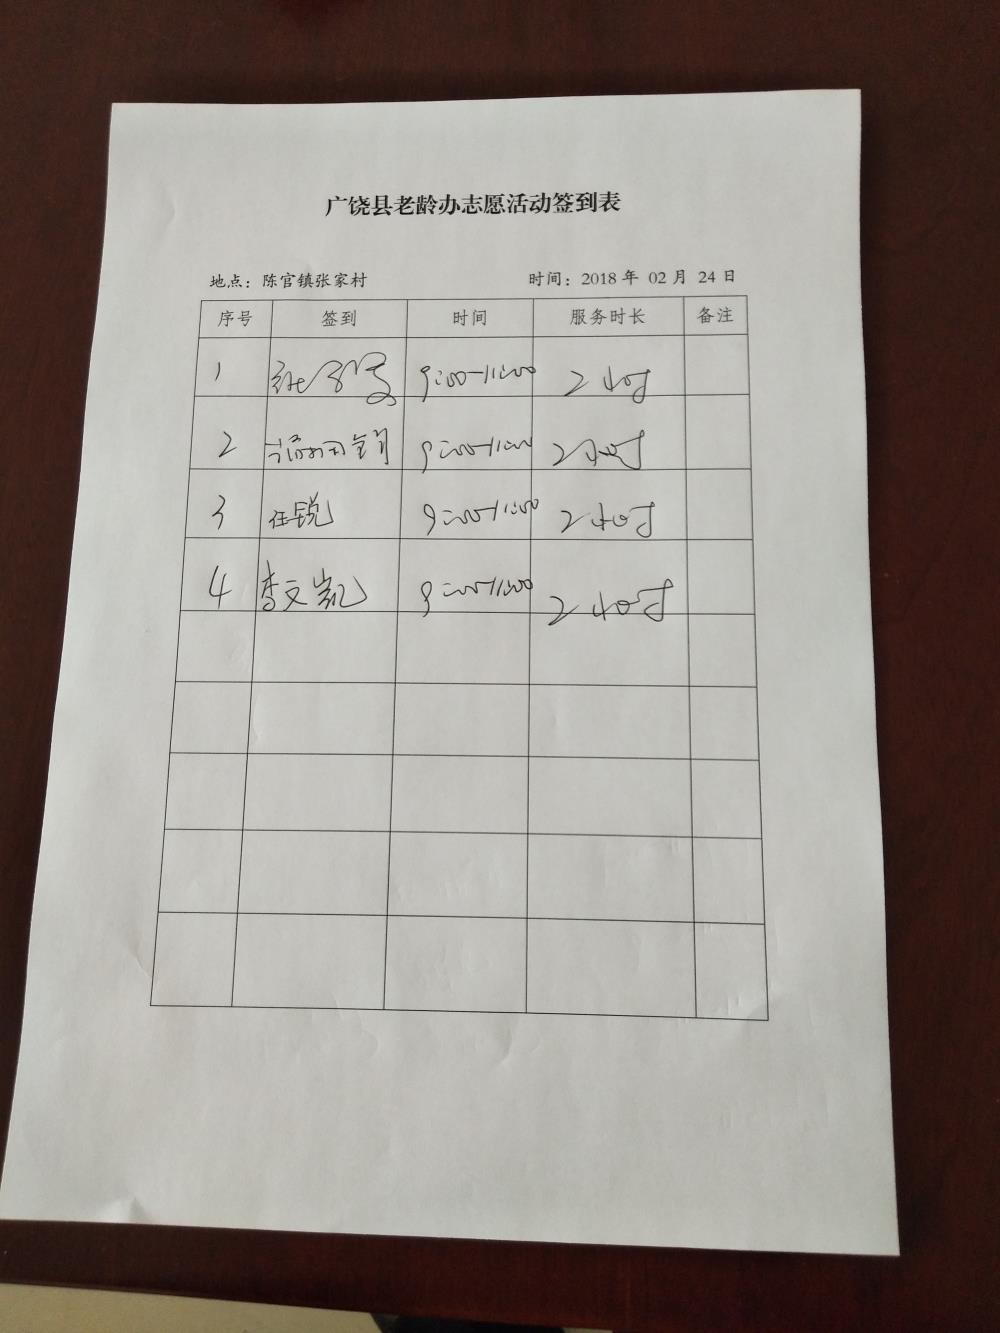 广饶县老龄办志愿活动签到表
地点：陈官镇张家村 时间：2018 年 02 月 24 日
序号 签到 时间 服务时长 备注
1 9:00-11:00 2小时
2 9:00-11:00 2小时
3 任锐 9:00-11:00 2小时
4 李文凯 9:00-11:00 2小时